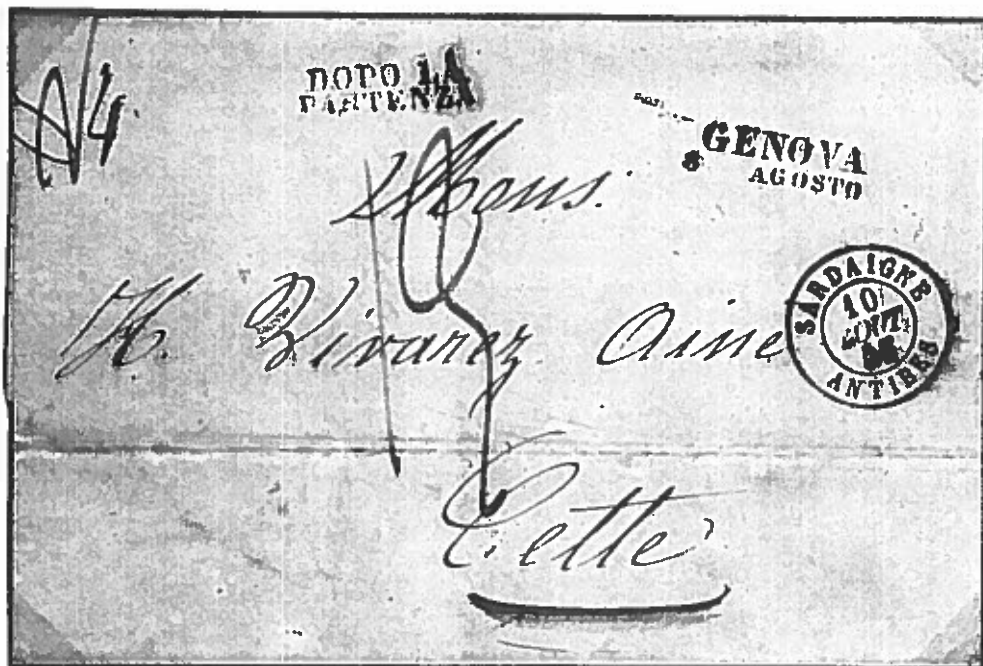 DOPO LA
PARTENZA
GENOVA
8 AGOSTO
Mons.
H. Vivarez Aine
SARDAIGNE
10
AOUT
ANTIBES
Cette